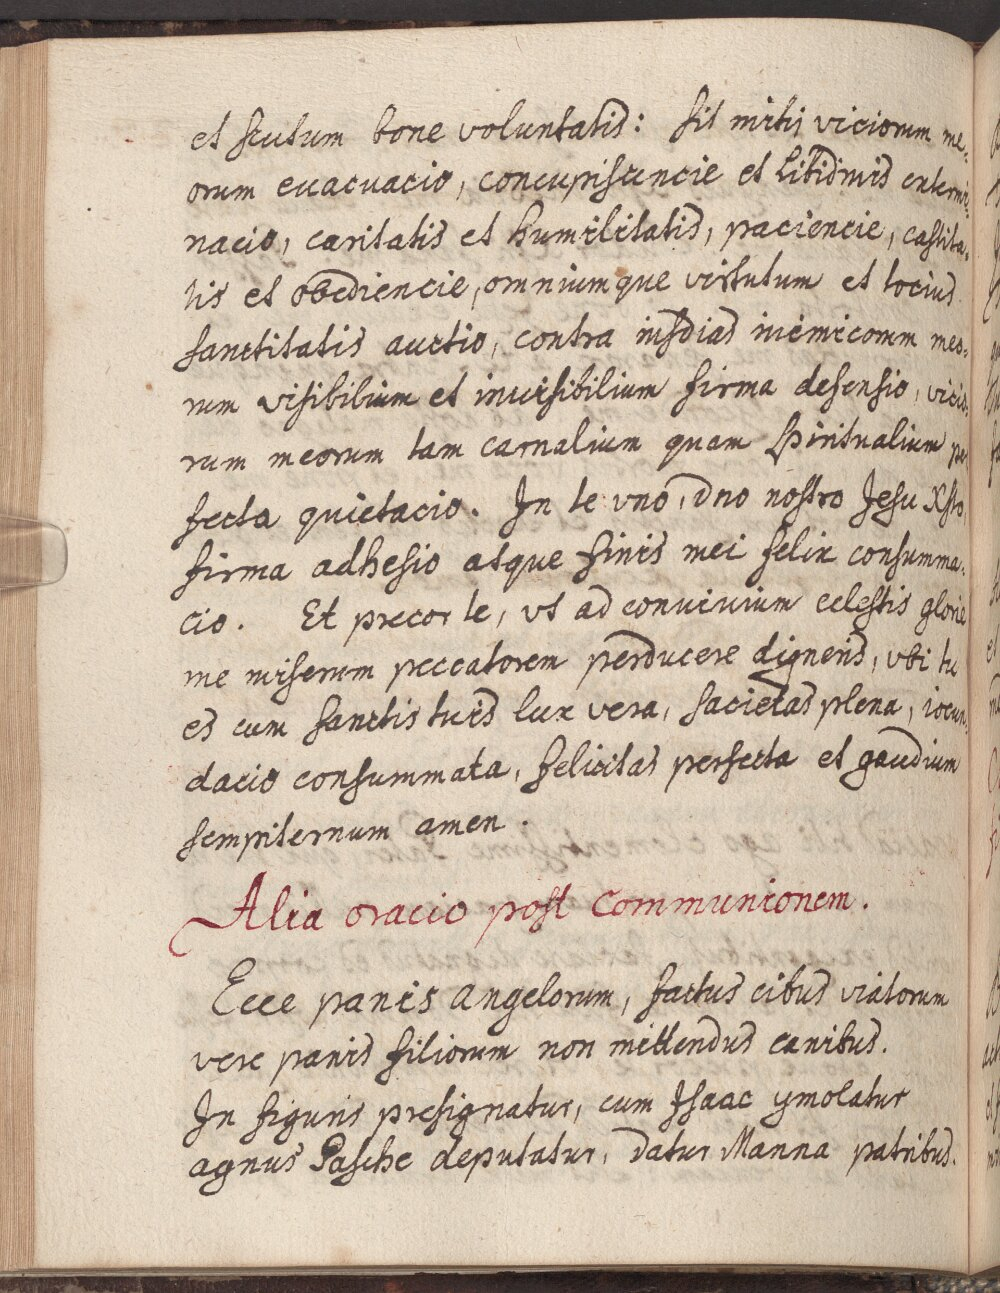 et scutum bone voluntatis: sit mihi viciorum me-
orum euacuacio, concupiscencie et libidinis extermi-
nacio, caritatis et humilitatis, paciencie, castita-
tis et obediencie, omniumque virtutum et tocius
sanctitatis auctio, contra insidias inimicorum meo-
rum visibilium et inuisibilium firma defensio, vicio-
rum meorum tam carnalium quam spiritualium per
fecta quietacio. In te vno, dno nostro Jesu Xsto,
firma adhesio atque finis mei felix consumma-
cio. Et precor te, vt ad conuiuium celestis glorie
me miserum peccatorem perducere digneris, vbi tu
es cum sanctis tuis lux vera, sacietas plena, iocun-
dacio consummata, felicitas perfecta et gaudium
sempiternum amen.
Alia oracio post Communionem.
Ecce panis angelorum, factus cibus viatorum
vere panis filiorum non mittendus canibus.
In figuris presignatur, cum Isaac ymolatur
agnus Pasche deputatur, datur Manna patribus.